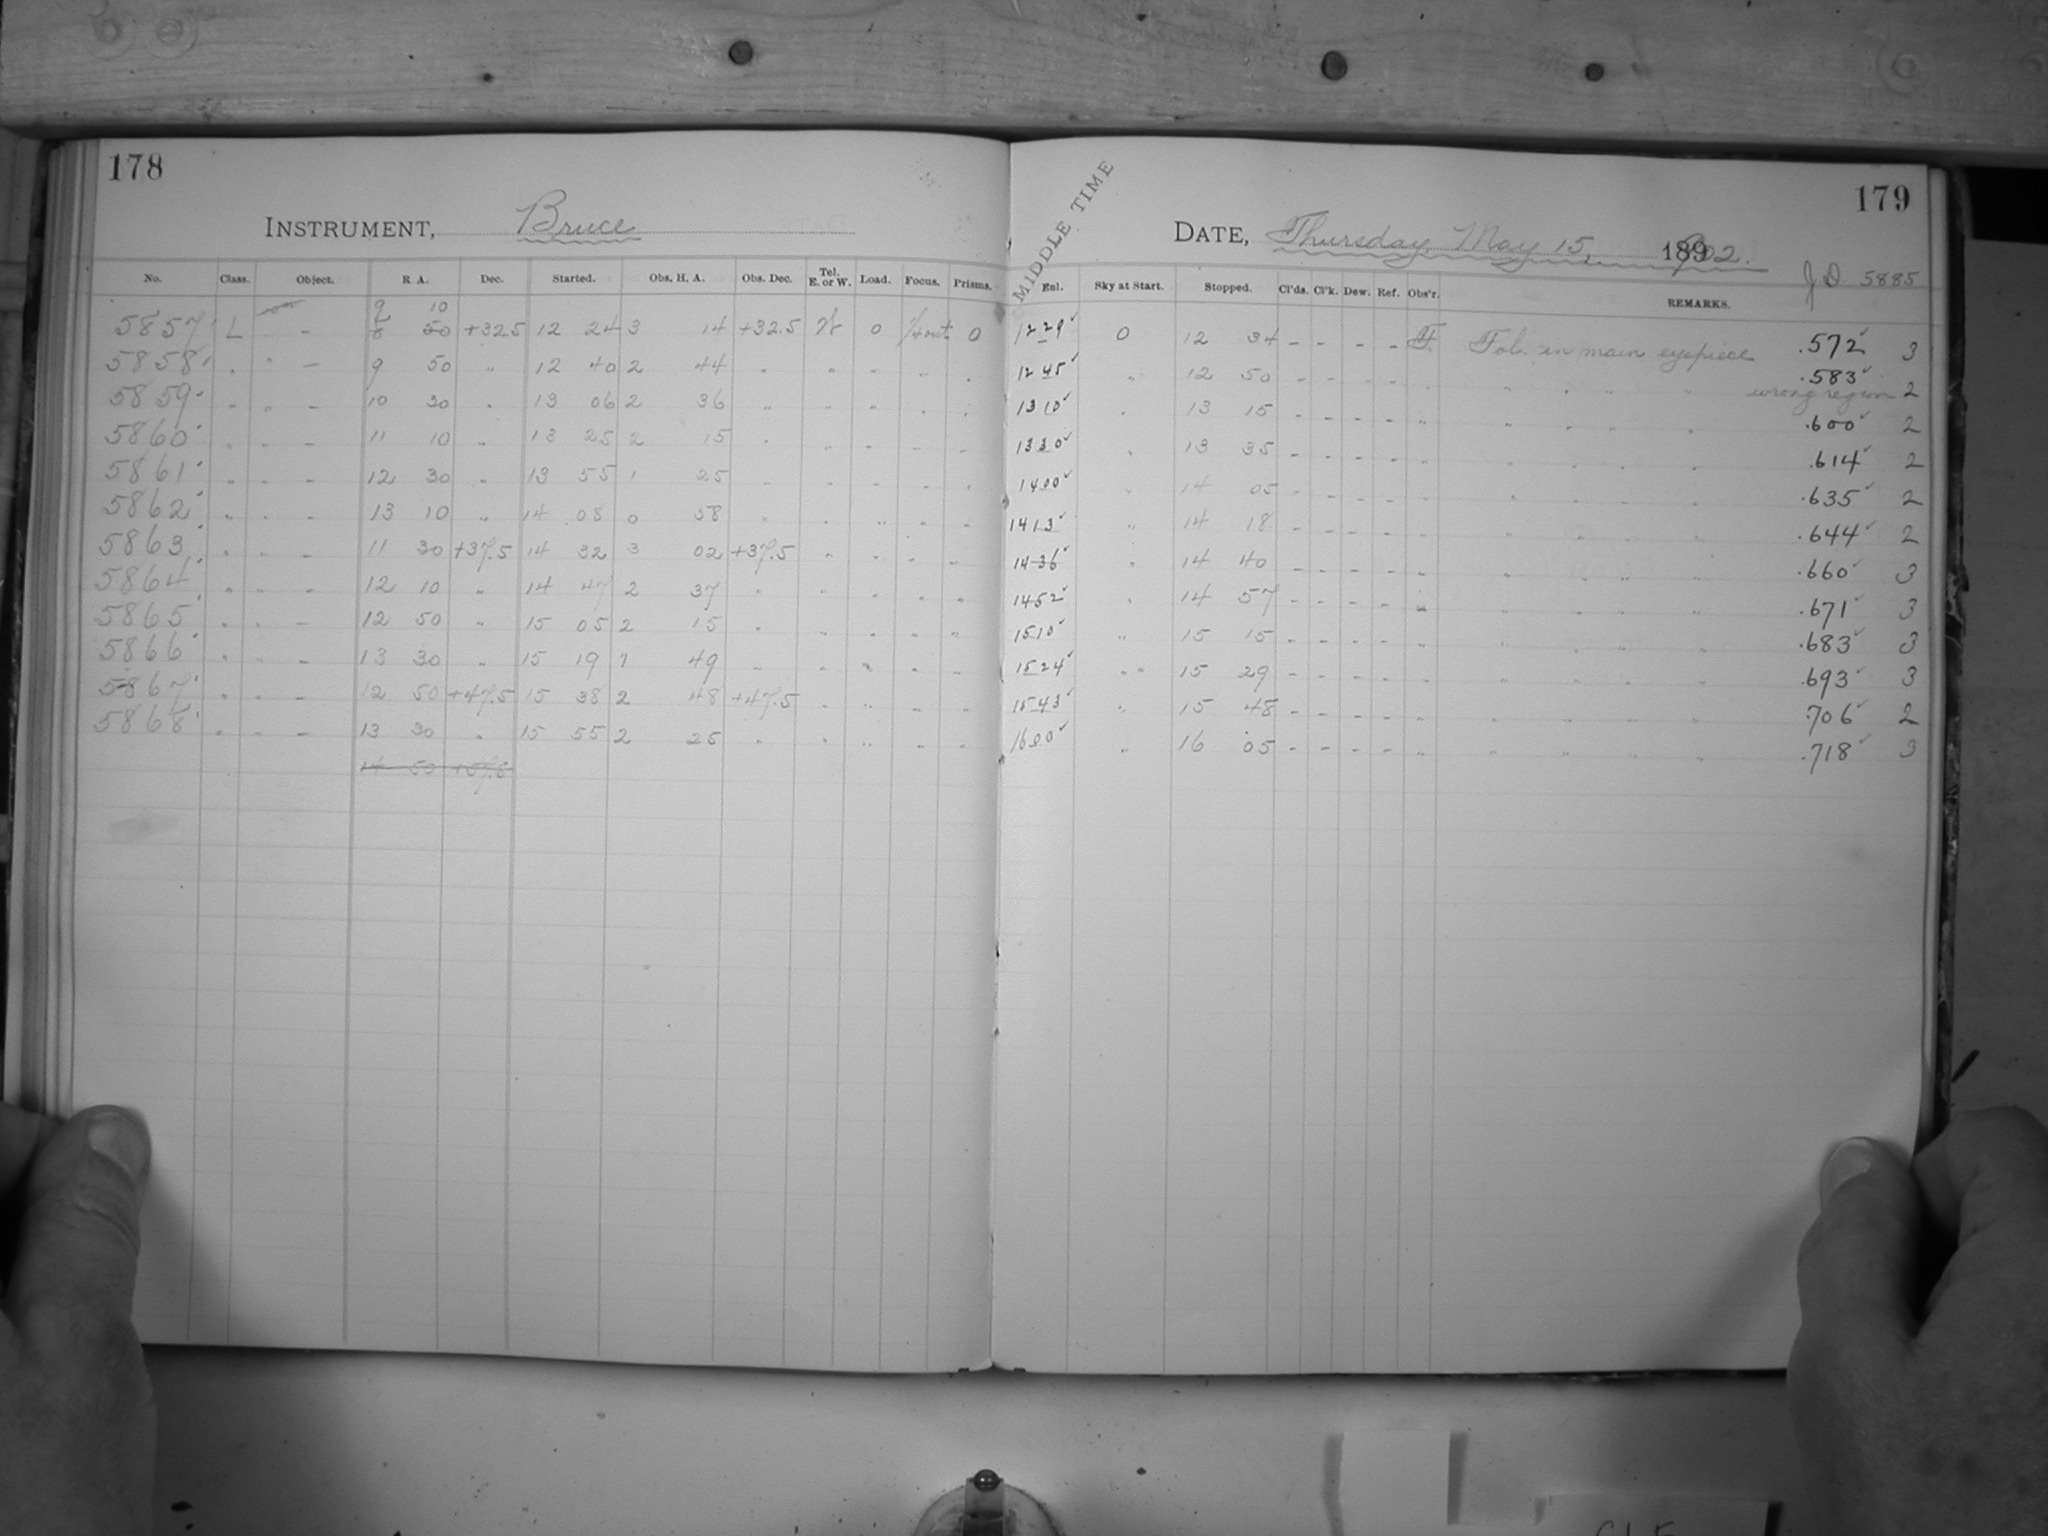 178
179
INSTRUMENT, Bruce
MIDDLE TIME
DATE, Thursday May 15, 1902.
J D 5885
No. Class. Object. R. A. Dec. Started. Obs. H. A. Obs. Dec. Tel. E. or W. Load. Focus. Prisms. Enl. Sky at Start. Stopped. Cl'ds. Cl'k. Dew. Ref. Obs'r. REMARKS.
9 10
5857 L - 8 50 +32.5 12 24 3 14 +32.5 W 0 1/4 out 0 12 29 0 12 34 - - - - Fol. in main eyepiece .572 3
5858 " - 9 50 " 12 40 2 44 " " " " " 12 45 " 12 50 - - - - " " " " " .583
wrong region 2
5859 " " - 10 30 " 13 06 2 36 " " " " " 13 10 " 13 15 - - - - " " " " " .600 2
5860 " " - 11 10 " 13 25 2 15 " " " " " 13 30 " 13 35 - - - - " " " " " .614 2
5861 " " - 12 30 " 13 55 1 25 " " " " " 14 00 " 14 05 - - - - " " " " " .635 2
5862 " " - 13 10 " 14 08 0 58 " " " " " 14 13 " 14 18 - - - - " " " " " .644 2
5863 " " - 11 30 +37.5 14 32 3 02 +37.5 " " " " 14 36 " 14 40 - - - - " " " " " .660 3
5864 " " - 12 10 " 14 47 2 37 " " " " " 14 52 " 14 57 - - - - " " " " " .671 3
5865 " " - 12 50 " 15 05 2 15 " " " " " 15 10 " 15 15 - - - - " " " " " .683 3
5866 " " - 13 30 " 15 19 1 49 " " " " " 15 24 " 15 29 - - - - " " " " " .693 3
5867 " " - 12 50 +47.5 15 38 2 48 +47.5 " " " " 15 43 " 15 48 - - - - " " " " " .706 2
5868 " " - 13 30 " 15 55 2 25 " " " " " 16 00 " 16 05 - - - - " " " " " .718 3
14 50 +57.5